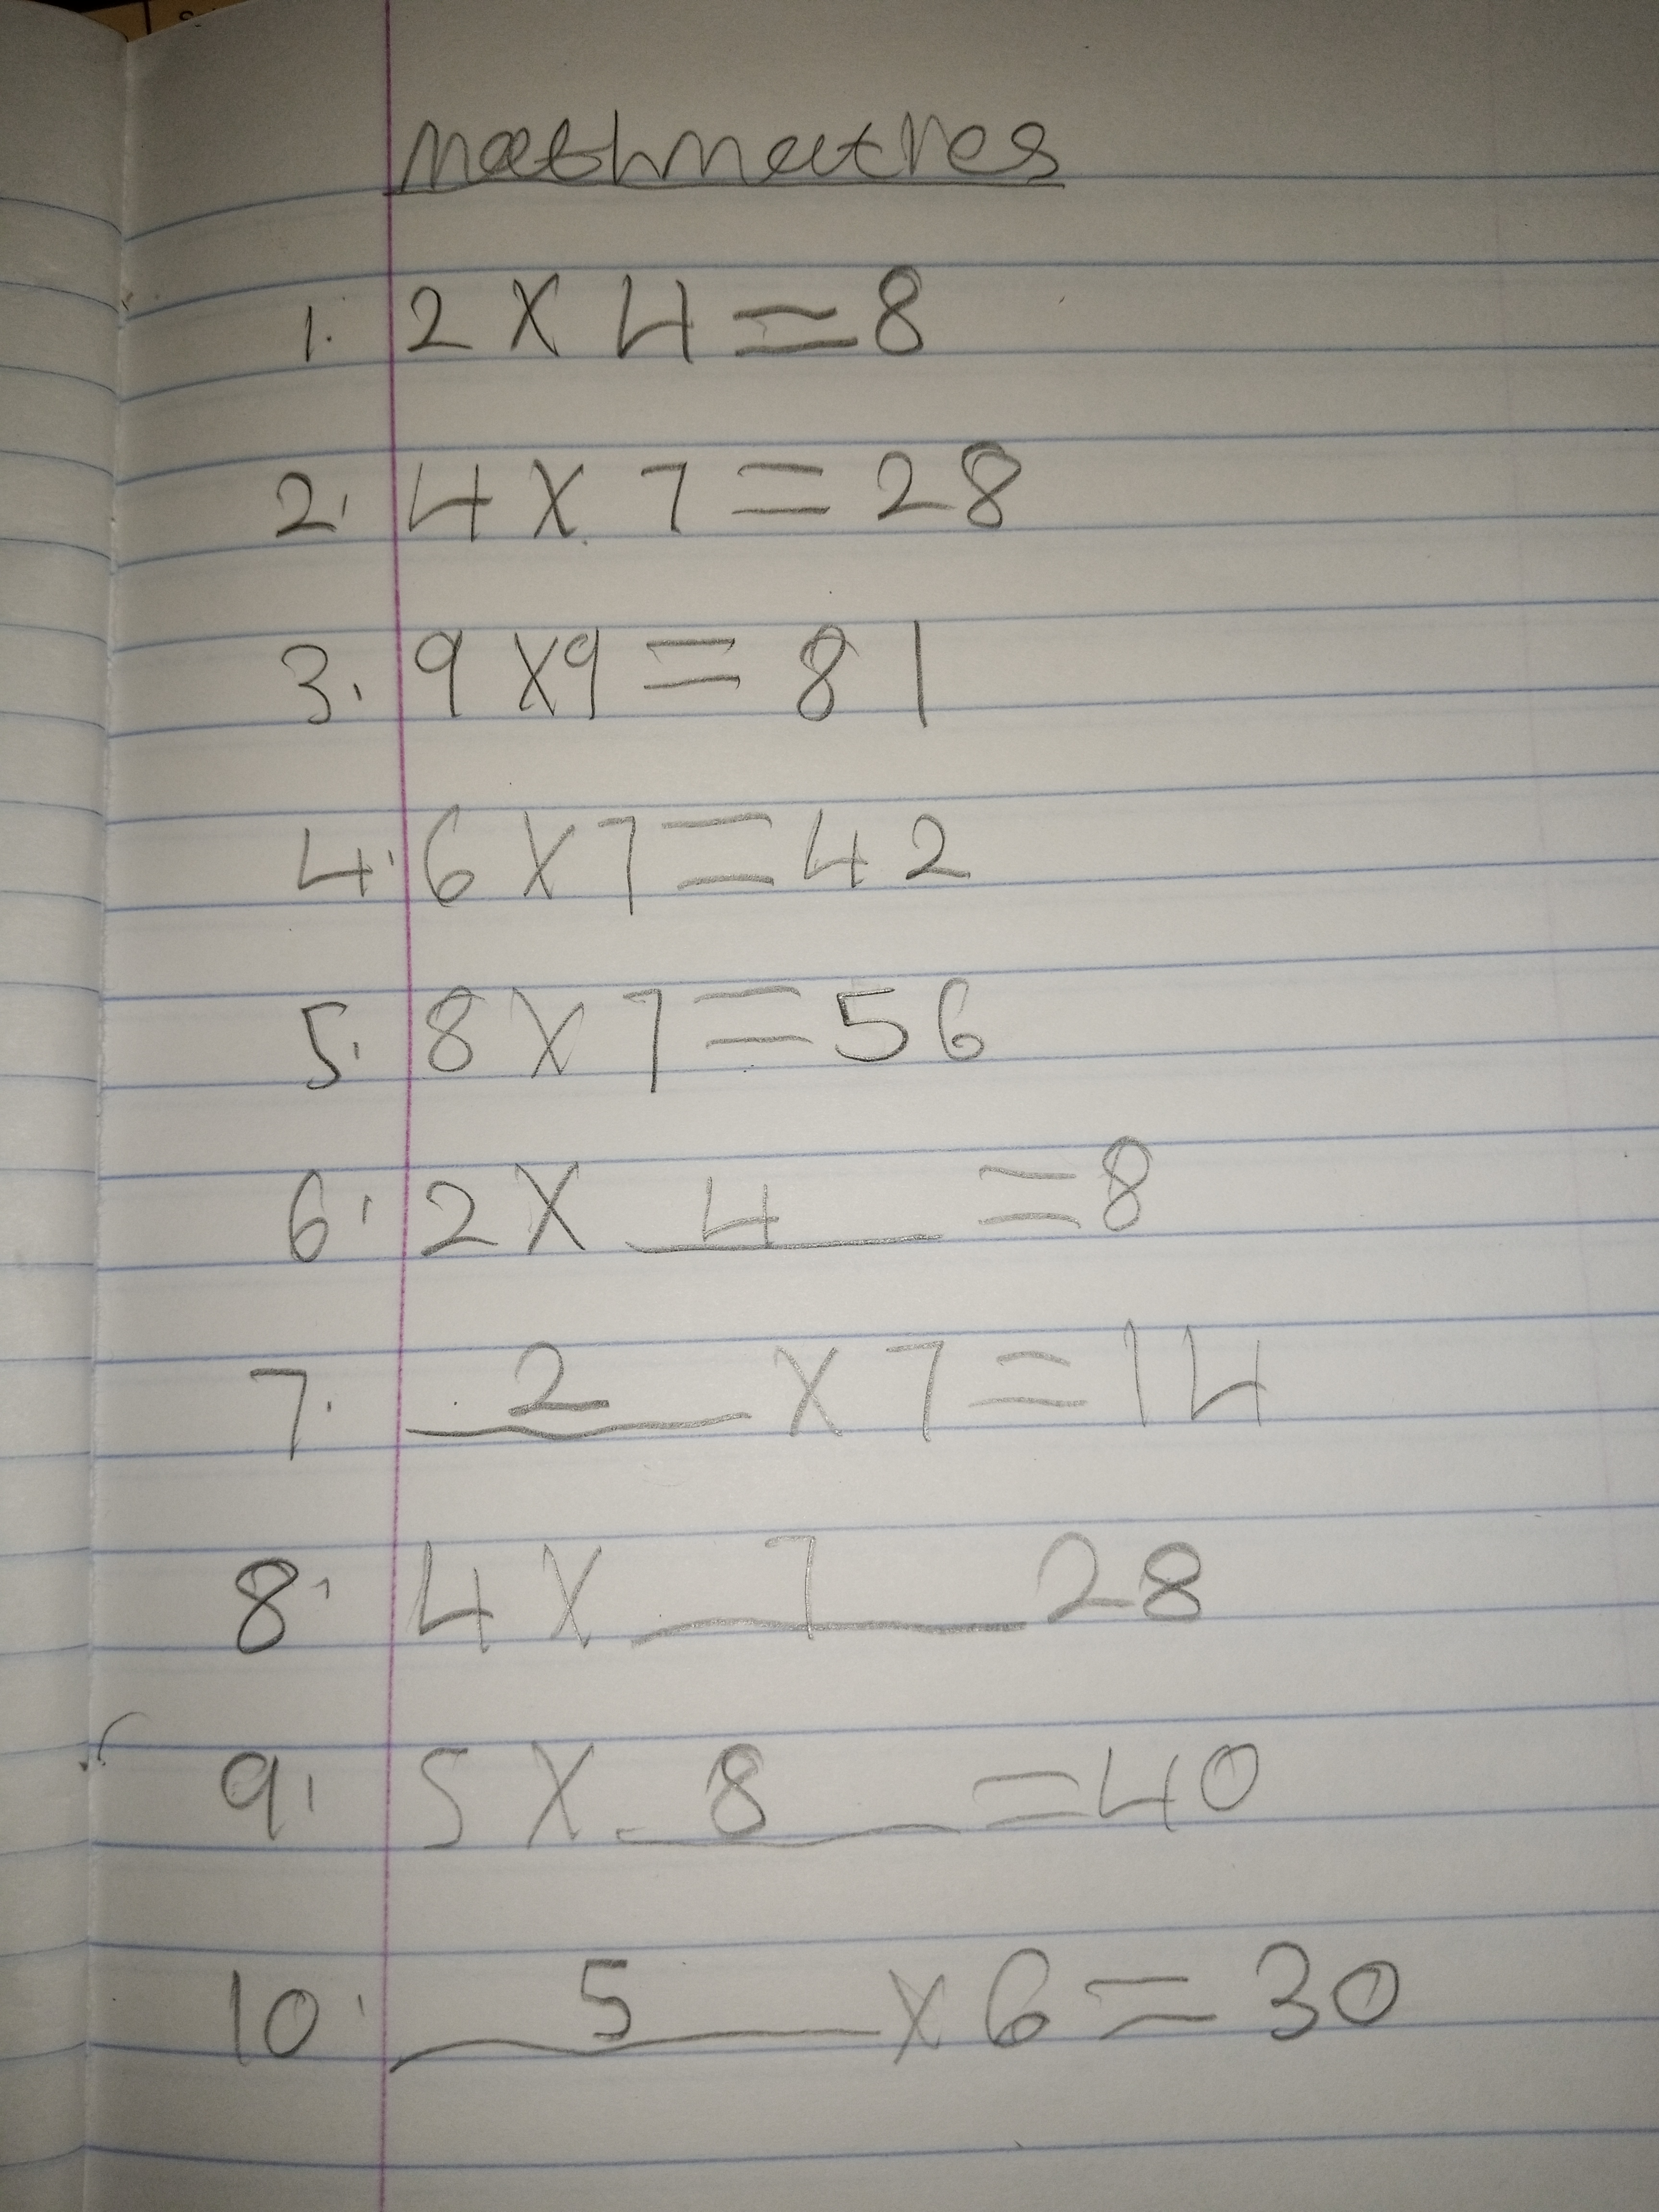 mathmatres
1. 2 × 4 = 8
2. 4 × 7 = 28
3. 9 × 9 = 81
4. 6 × 7 = 42
5. 8 × 7 = 56
6. 2 × 4 = 8
7. 2 × 7 = 14
8. 4 × 7 28
9. 5 × 8 = 40
10. 5 × 6 = 30